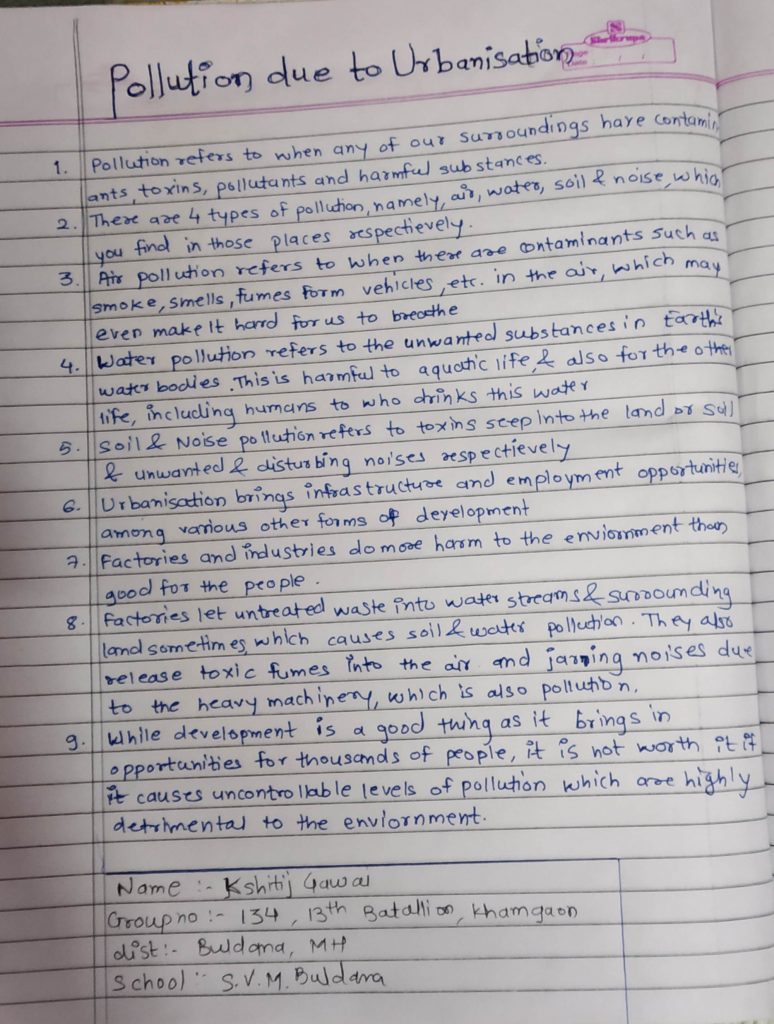 Shrikrupa
Page
Date / /
Pollution due to Urbanisation
1. Pollution refers to when any of our surroundings have contamin
ants, toxins, pollutants and harmful substances.
2. There are 4 types of pollution, namely, air, water, soil & noise, which
you find in those places respectievely.
3. Air pollution refers to when there are contaminants such as
smoke, smells, fumes form vehicles, etc. in the air, which may
even make it hard for us to breathe
4. Water pollution refers to the unwanted substances in Earth's
water bodies. This is harmful to aquatic life, & also for the other
life, including humans to who drinks this water
5. Soil & Noise pollution refers to toxins seep into the land or soil
& unwanted & disturbing noises respectievely
6. Urbanisation brings infrastructure and employment opportunities,
among various other forms of development
7. Factories and industries do more harm to the enviornment than
good for the people.
8. Factories let untreated waste into water streams & surrounding
land sometimes which causes soil & water pollution. They also
release toxic fumes into the air and jarring noises due
to the heavy machinery, which is also pollution,
9. While development is a good thing as it brings in
opportunities for thousands of people, it is not worth it if
it causes uncontrollable levels of pollution which are highly
detrimental to the enviornment.
Name :- Kshitij Gawai
Group no :- 134, 13th Batallion, Khamgaon
dist :- Buldana, MH
School :- S.V.M. Buldana